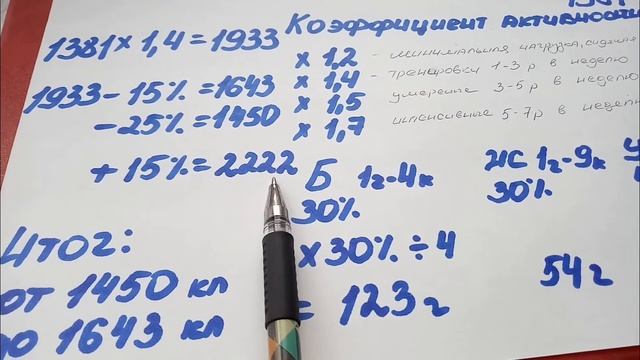 Коэффициент активности
1381 × 1,4 = 1933
× 1,2 - минимальная нагрузка, сидячая
× 1,4 - тренировки 1-3 р в неделю
× 1,5 умереные 3-5 р в неделю
× 1,7 интенсивные 5-7 р в неделю
1933 - 15% = 1643
- 25% = 1450
+ 15% = 2222
Б 1г-4к
30%
× 30% ÷ 4
= 123 г
ЖС 1г-9к
30%
54 г
Итог:
от 1450 кл
до 1643 кл